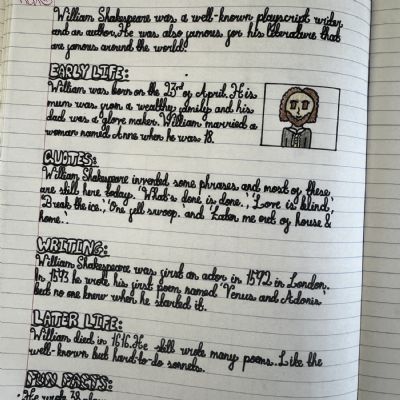 William Shakespeare was a well-known playscript writer
and an author. He was also famous for his literature that
are famous around the world!
EARLY LIFE:
William was born on the 23rd of April. His
mum was from a wealthy family and his
dad was a glove maker. William married a
woman named Anne when he was 18.
QUOTES:
William Shakespeare invented some phrases and most of these
are still here today. 'What's done is done.', 'Love is blind',
'Break the ice.', 'One fell swoop. and 'Eaten me out of house &
home.'
WRITING:
William Shakespeare was first an actor in 1592 in London.
In 1593 he wrote his first poem named 'Venus and Adonis'
but no one knew when he started it.
LATER LIFE:
William died in 1616. He still wrote many poems. Like the
well-known but hard-to-do sonnets.
FUN FACTS:
He wrote 38